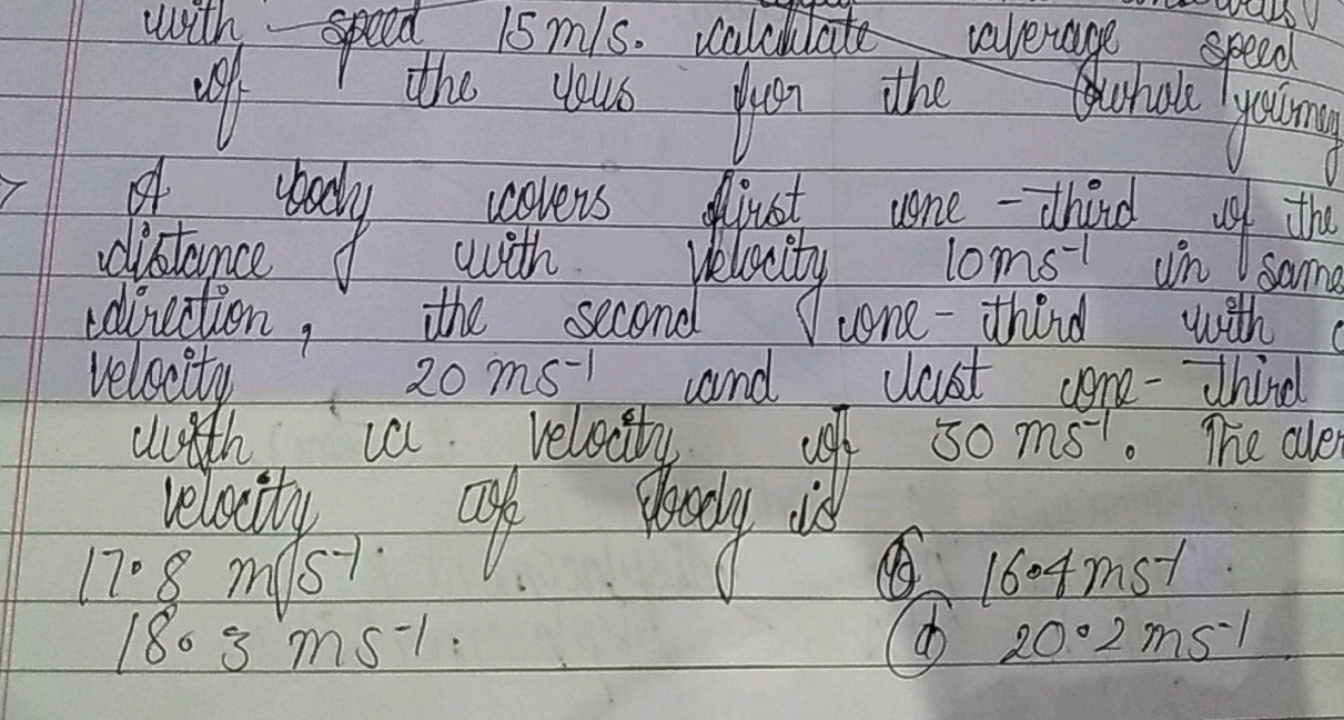 with speed 15 m/s. calculate average speed
of the bus for the whole journey
A body covers first one-third of the
distance with velocity 10 ms-1 in same
direction, the second one-third with
velocity 20 ms-1 and last one-third
with a velocity of 30 ms-1. The aver
velocity of body is
17.8 m/s-1. 16.4 ms-1
18.3 ms-1. (d) 20.2 ms-1